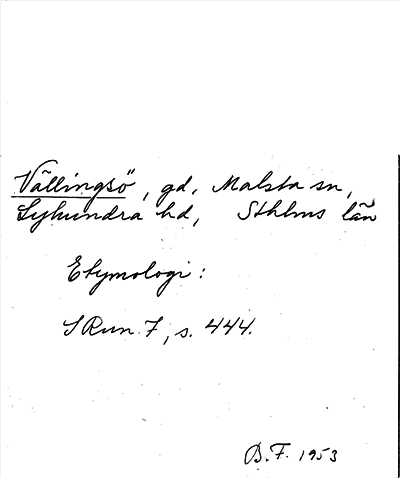 Vällingsö, gd, Malsta sn,
Lyhundra hd, Sthlms län
Etymologi:
SRun 7, s. 444.
B.F. 1953